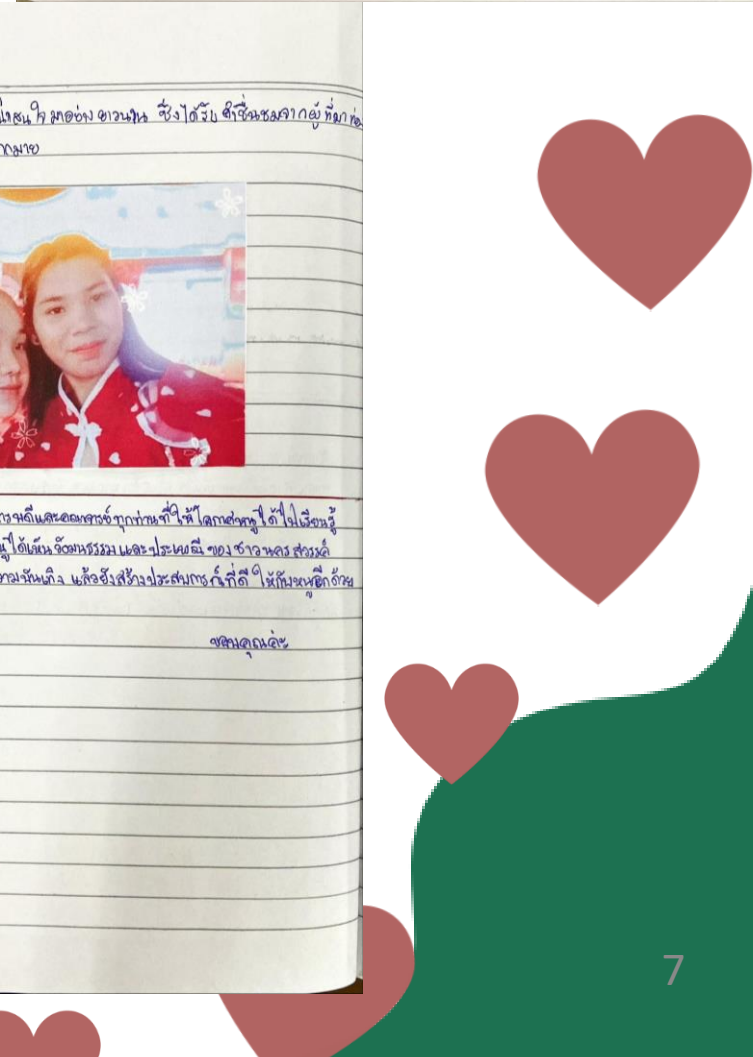 ใจมาอย่างยาวนาน ซึ่งได้รับคำชื่นชมจากผู้ที่มาท่อง
ากมาย
และคณาจารย์ทุกท่านที่ให้โอกาสหนูได้ไปเรียนรู้
ได้เห็นวัฒนธรรมและประเพณีของชาวนครสวรรค์
วามบันเทิง แล้วยังสร้างประสบการณ์ที่ดีให้กับหนูอีกด้วย
ขอบคุณค่ะ
7